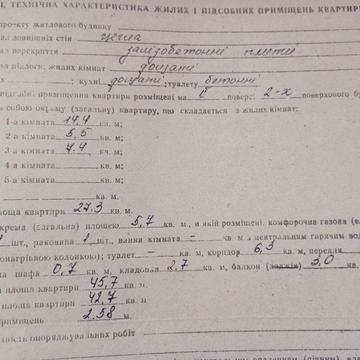 І. ТЕХНІЧНА ХАРАКТЕРИСТИКА ЖИЛИХ І ПІДСОБНИХ ПРИМІЩЕНЬ КВАРТИР
проекту житлового будинку
ал зовнішніх стін цегла
ал перекриття залізобетонні плити
ка підлоги: жилих кімнат дощаті
х ; кухні дощаті; туалету бетонні
підсобні приміщення квартири розміщені на І поверсі 2-х поверхового бу
з собою окрему (загальну) квартиру, що складається з жилих кімнат:
1-а кімната 14.4 кв. м;
2-а кімната 5,5 кв. м;
3-а кімната 7.4 кв. м;
4-а кімната кв. м;
5-а кімната кв. м;
кв. м.
лоща квартири 27.3 кв. м.
крема (загальна) площею 5,7 кв. м, в якій розміщені, комфорочна газова
шт., раковина 1 шт., ванна кімната — кв. м з центральним гарячим вод
онагрівною колонкою); туалет — кв. м, коридор 6,3 кв. м, передпо
на шафа 0,7 кв. м, кладовая 2.7 кв. м, балкон (лоджія) 3,0 кв.
а площа квартири 45,7 кв. м
площа квартири 42,7 кв. м
риміщень 2.58 м.
ність опоряджувальних робіт